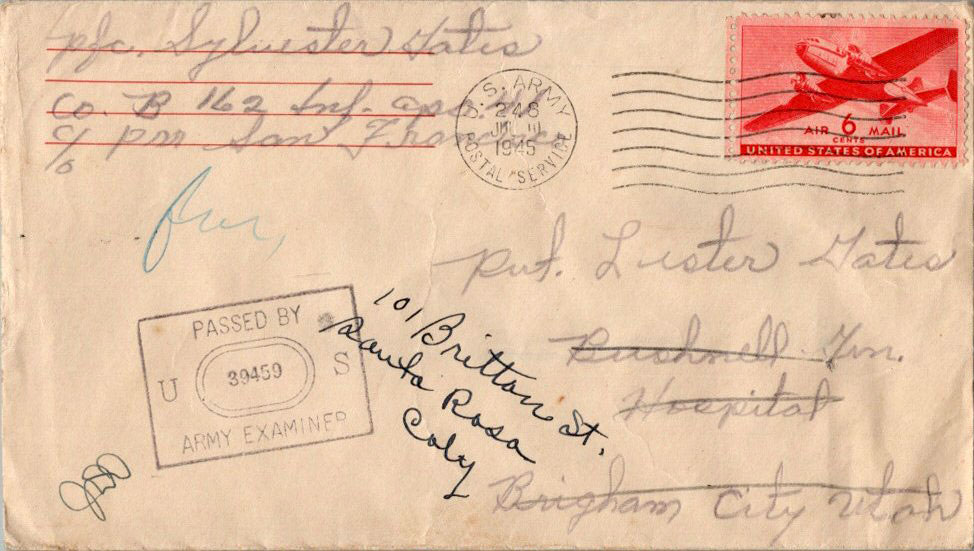 Pfc. Sylvester Gates
Co. B 162 Inf. apo
c/o P.M. San Francisco
U. S. ARMY
248
JUL 11
1945
POSTAL SERVICE
AIR 6 MAIL
CENTS
UNITED STATES OF AMERICA
Pvt. Lester Gates
Bushnell Gen.
Hospital
Brigham City Utah
101 Britton St.
Santa Rosa
Calif
PASSED BY
U 39459 S
ARMY EXAMINER